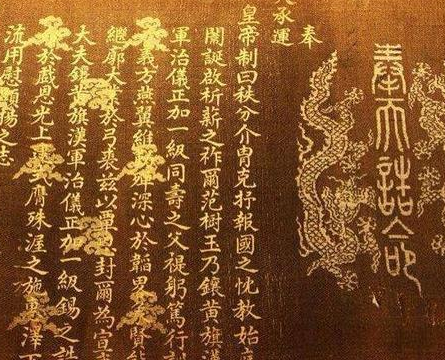 奉天誥命
奉
天承運
皇帝制曰秩分介冑克抒報國之忱教始
誕啟析新之祚爾范樹玉乃鑲黃旗漢
軍治儀正加一級同壽之父禔躬篤行
義方燕翼維深心於韜畧賢能
繼廓大業於弓裘茲以覃恩封爾為宣
大夫鑲黃旗漢軍治儀正加一級錫之誥
於戲恩光上式膺殊渥之施寵澤下
流用慰顯揚之志